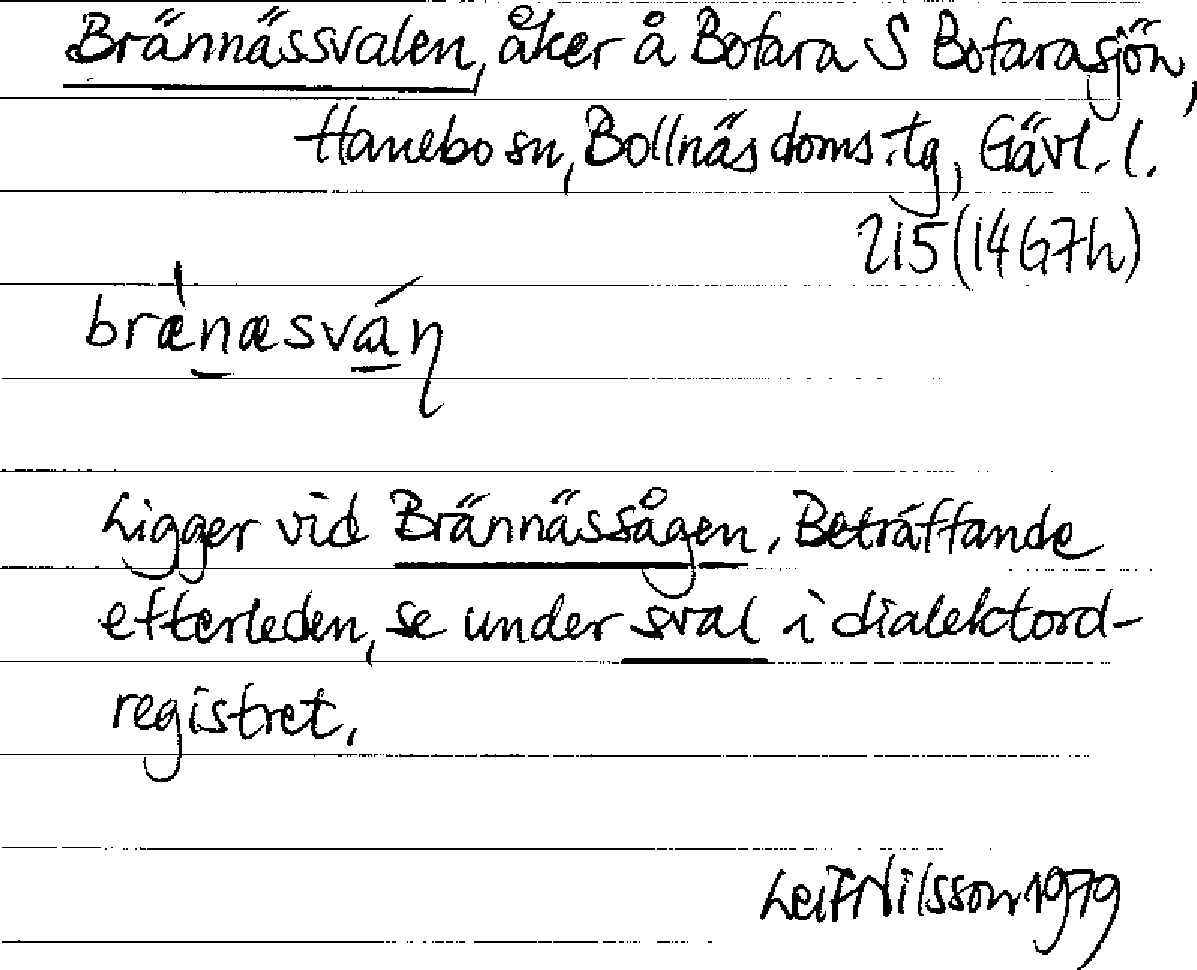 Brännässvalen, åker å Bofara S Bofarasjön,
Hanebo sn, Bollnäs doms.tg, Gävl. l.
215 (14G7h)
bræ̀næsván
Ligger vid Brännässågen. Beträffande
efterleden, se under sval i dialektord-
registret.
Leif Nilsson 1979